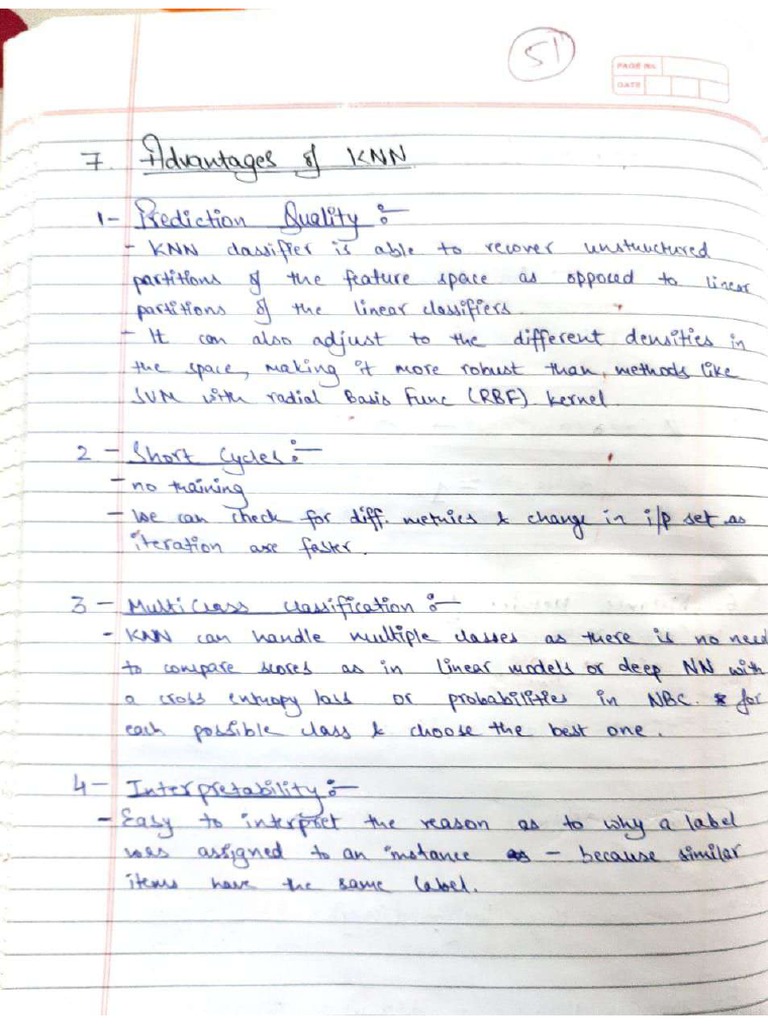 51
PAGE No.
DATE
7. Advantages of KNN
1- Prediction Quality :-
- KNN classifier is able to recover unstructured
partitions of the feature space as opposed to linear
partitions of the linear classifiers.
- It can also adjust to the different densities in
the space, making it more robust than, methods like
SVM with radial Basis Func (RBF) kernel.
2 - Short Cycles :-
- no training
- We can check for diff. metrics & change in i/p set as
iteration are faster.
3 - Multi Class Classification :-
- KNN can handle multiple classes as there is no need
to compare scores as in linear models or deep NN with
a cross entropy loss or probabilities in NBC. for
each possible class & choose the best one.
4 - Interpretability :-
- Easy to interpret the reason as to why a label
was assigned to an instance - because similar
items have the same label.